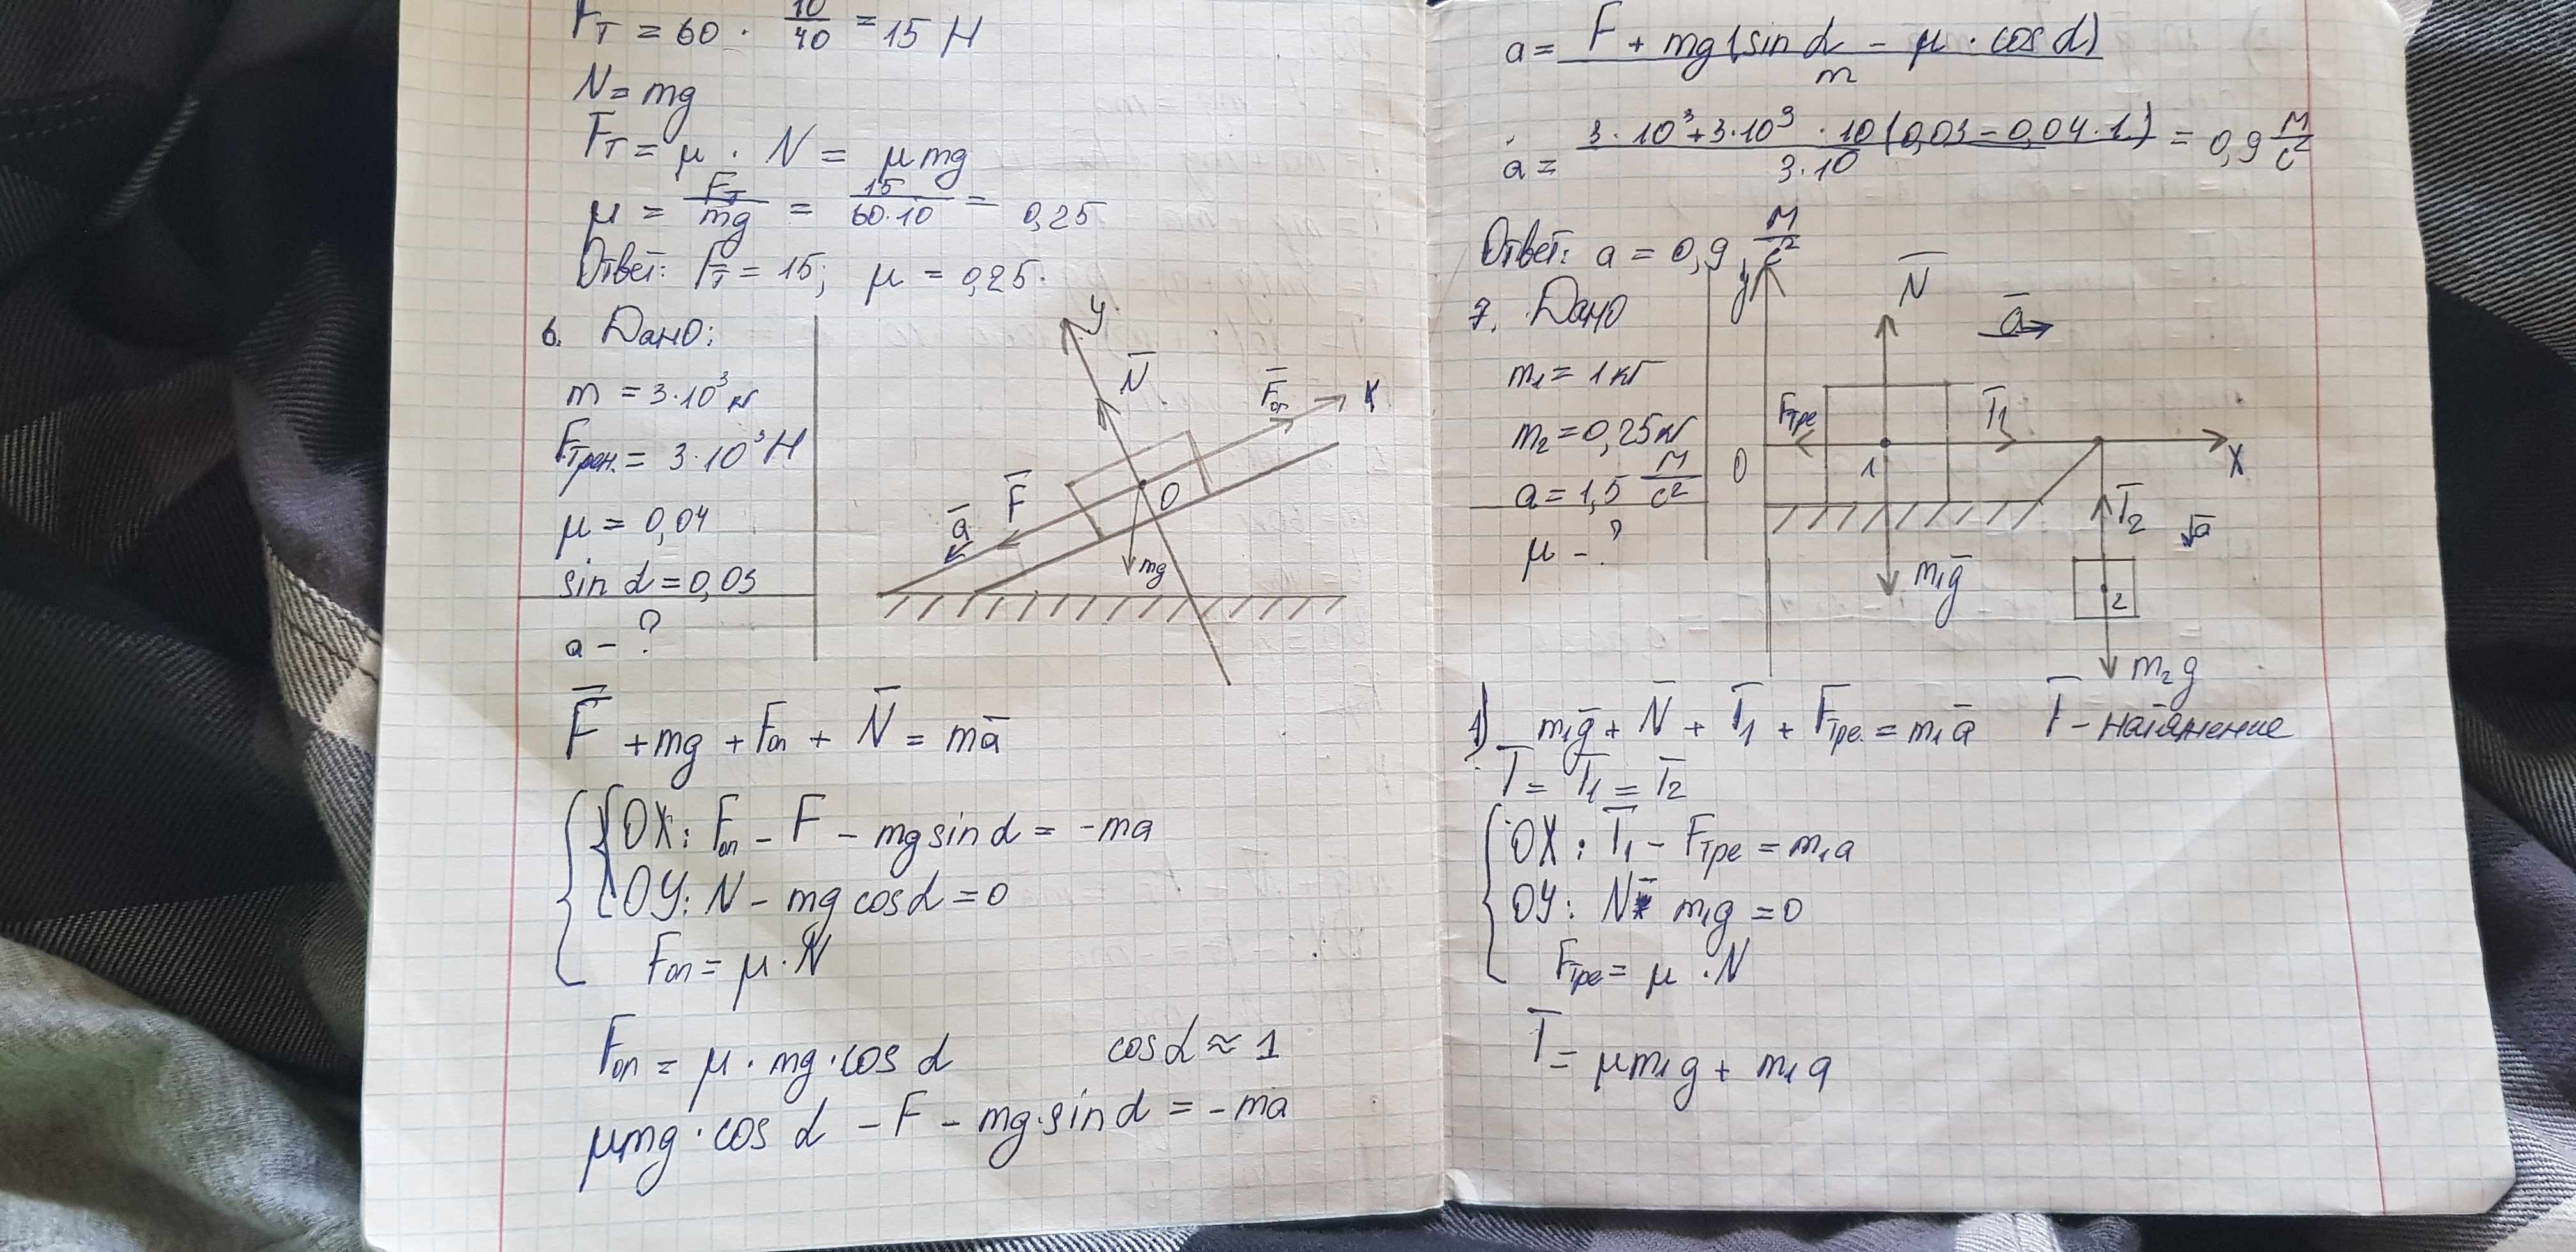 Fт = 60 · 10/40 = 15 Н
N = mg
Fт = μ · N = μmg
μ = Fт/mg = 15/60·10 = 0,25
Ответ: Fт = 15; μ = 0,25.
6. Дано:
m = 3·10³ кг
Fтрен. = 3·10³ Н
μ = 0,04
sin α = 0,03
a – ?
y
N̅
F̅оп
X
F̅
a̅
O
mg
F̅ + mg + Fоп + N̅ = ma̅
OX: Fоп – F – mg sin α = -ma
OY: N – mg cos α = 0
Fоп = μ·N
Fоп = μ · mg · cos α cos α ≈ 1
μmg · cos α – F – mg·sin α = -ma
a = F + mg(sin α – μ · cos α)/m
a = 3·10³+3·10³ · 10(0,03–0,04·1)/3·10 = 0,9 м/с²
Ответ: a = 0,9 м/с²
7. Дано
m₁ = 1 кг
m₂ = 0,25 кг
a = 1,5 м/с²
μ – ?
y
N̅
a̅
Fтре
T̅₁
O
1
X
T̅₂
a̅
m₁g̅
2
m₂g
1) m₁g̅ + N̅ + T̅₁ + F̅тре. = m₁a̅ T̅ – натяжение
T̅ = T̅₁ = T̅₂
OX: T̅₁ – Fтре = m₁a
OY: N – m₁g = 0
Fтре = μ · N
T̅ = μm₁g + m₁a